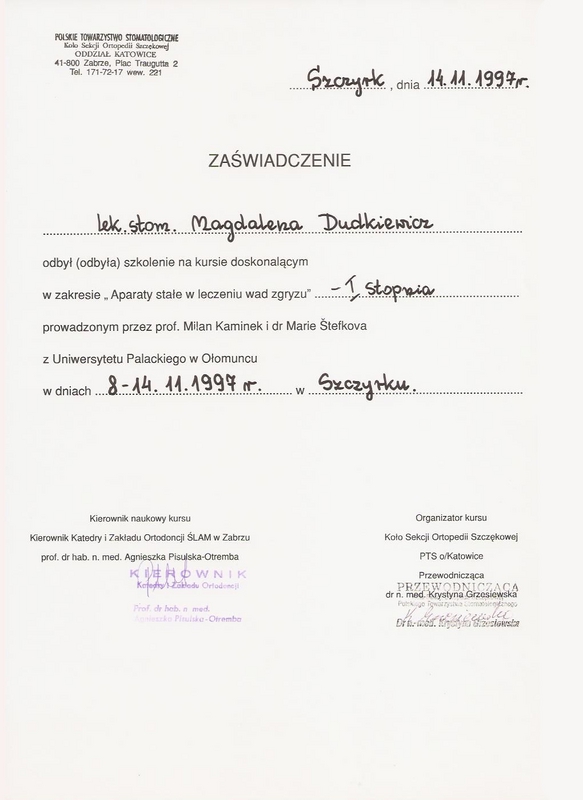 POLSKIE TOWARZYSTWO STOMATOLOGICZNE
Koło Sekcji Ortopedii Szczękowej
ODDZIAŁ KATOWICE
41-800 Zabrze, Plac Traugutta 2
Tel. 171-72-17 wew. 221
Szczyrk, dnia 14.11.1997r.
ZAŚWIADCZENIE
lek. stom. Magdalena Dudkiewicz
odbył (odbyła) szkolenie na kursie doskonalącym
w zakresie „Aparaty stałe w leczeniu wad zgryzu” - I stopnia
prowadzonym przez prof. Milan Kaminek i dr Marie Štefkova
z Uniwersytetu Palackiego w Ołomuncu
w dniach 8-14. 11.1997 r. w Szczyrku.
Kierownik naukowy kursu
Kierownik Katedry i Zakładu Ortodoncji ŚLAM w Zabrzu
prof. dr hab. n. med. Agnieszka Pisulska-Otremba
KIEROWNIK
Katedry i Zakładu Ortodoncji
Prof. dr hab. n. med.
Agnieszka Pisulska-Otremba
Organizator kursu
Koło Sekcji Ortopedii Szczękowej
PTS o/Katowice
Przewodnicząca
PRZEWODNICZĄCA
dr n. med. Krystyna Grzesiewska
Polskiego Towarzystwa Stomatologicznego
Dr n. med. Krystyna Grzesiewska